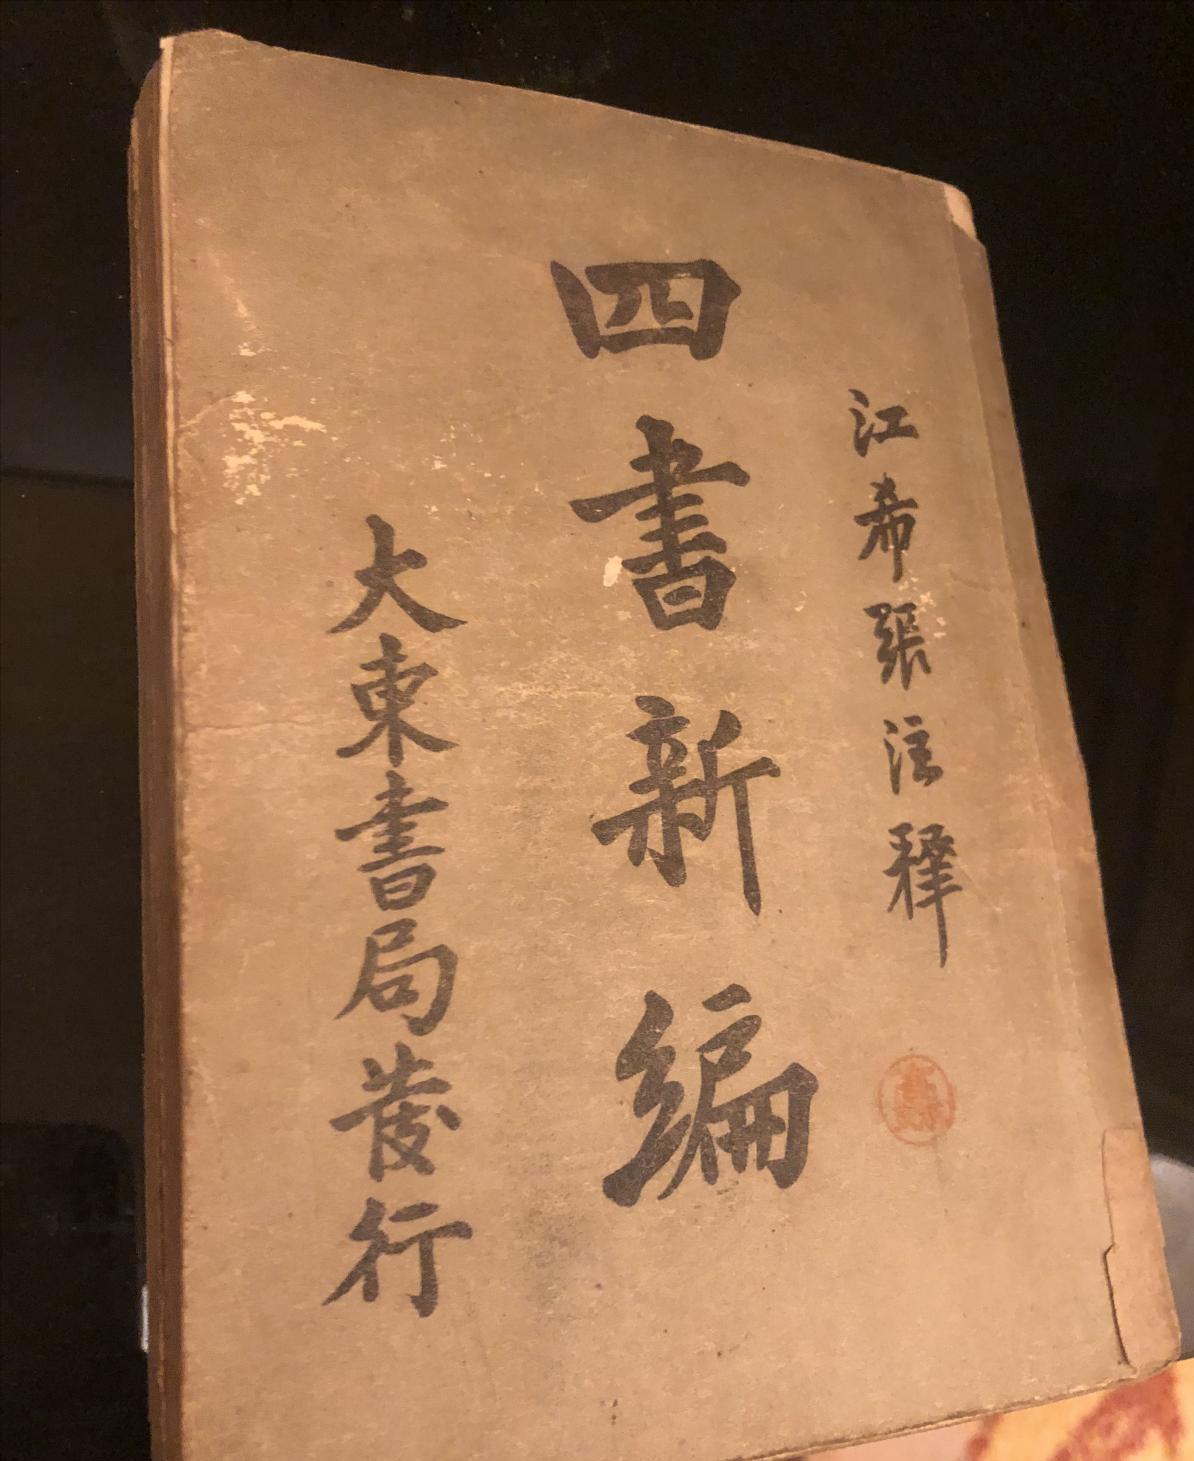 江希張注釋
四書新編
大東書局發行